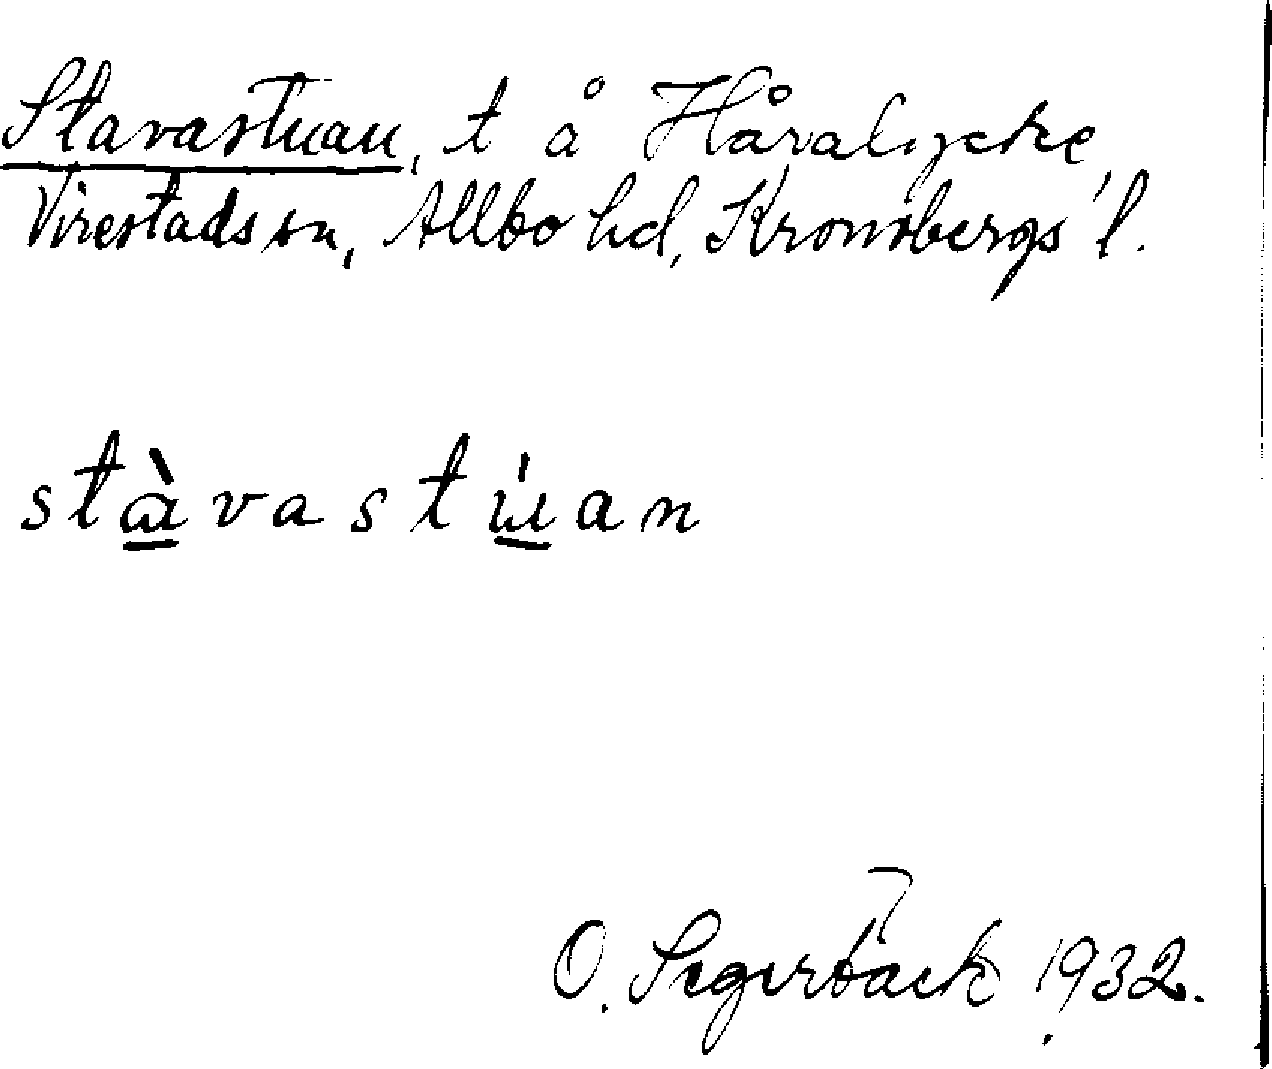 Stavastuan, t å Håralycke
Virestads sn, Allbo hd, Kronobergs l.
stàvastúan
O. Segerbäck 1932.